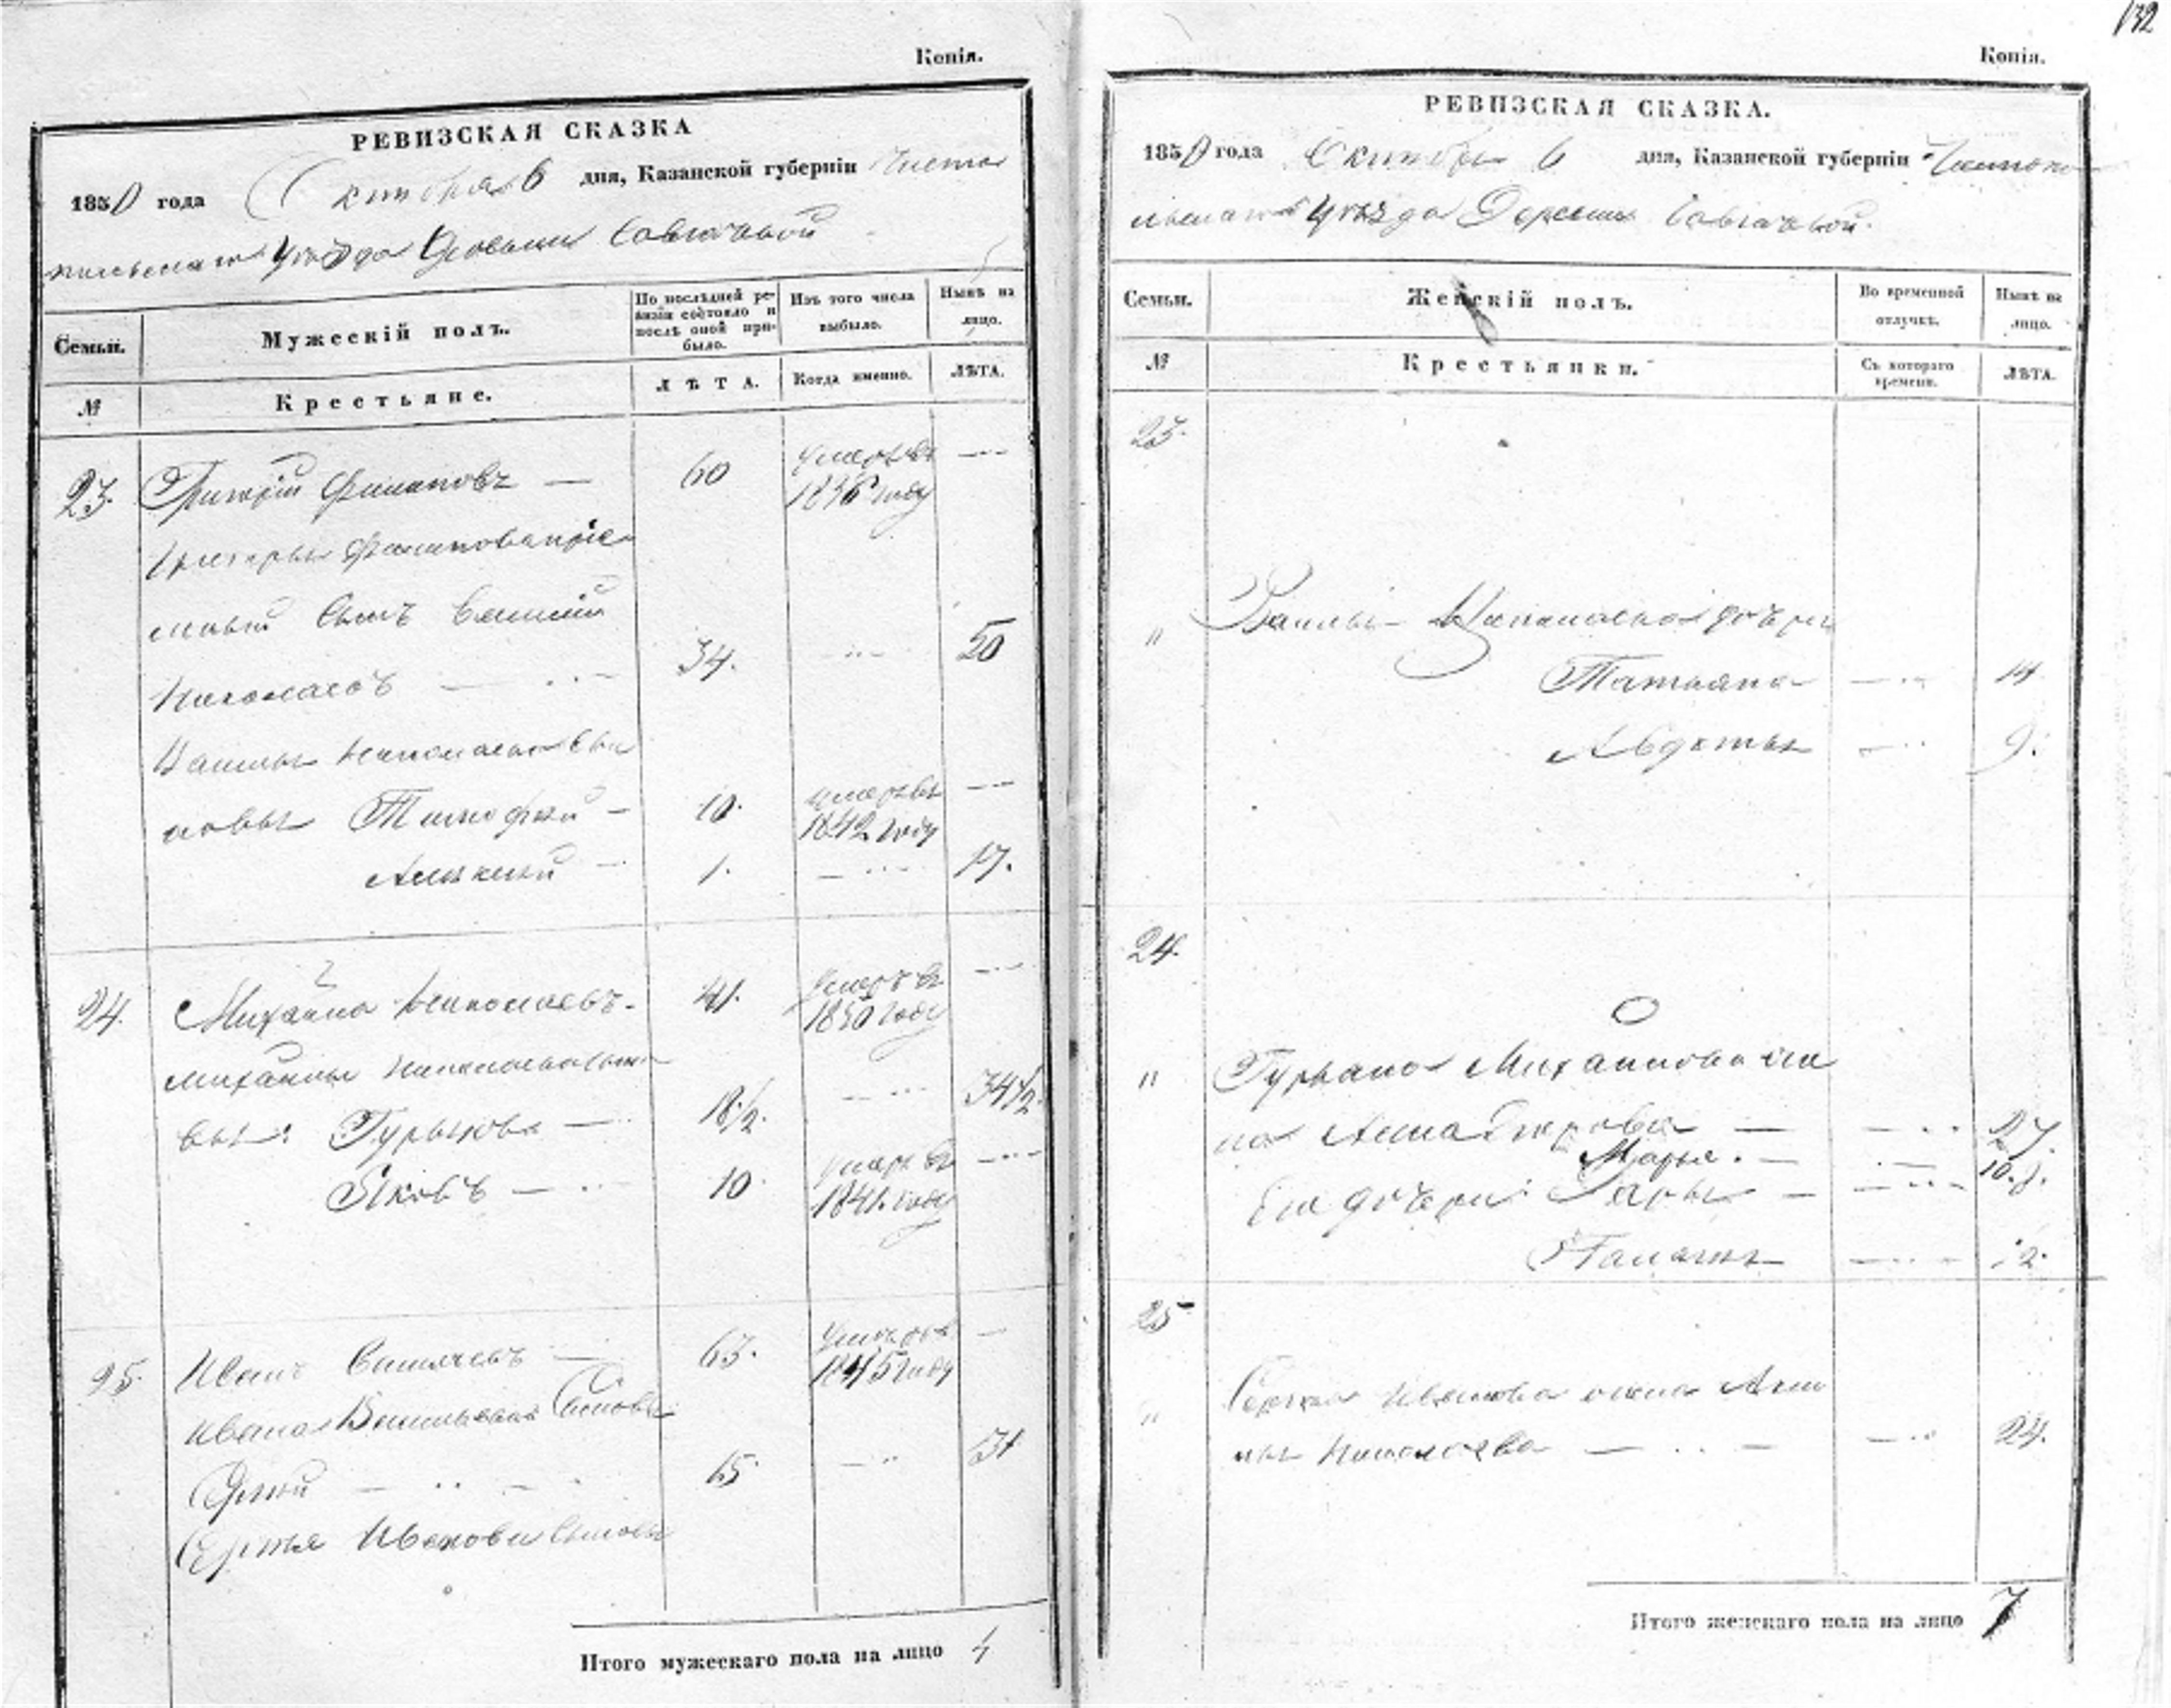 Копія.
РЕВИЗСКАЯ СКАЗКА
1850 года Октября 6 дня, Казанской губерніи Чисто
польскаго Уѣзда Деревни
Семьи.
Мужескій полъ.
По послѣдней ре-
визіи состояло и
послѣ оной при-
было.
Изъ того числа
выбыло.
Нынѣ на
лицо.
№
Крестьяне.
ЛѢТА.
Когда именно.
ЛѢТА.
23. Григорій Филиповъ — 60 умеръ въ —
1836 году
Григорья Филипова прiе
мный сынъ Василій
Николаевъ — 34. — 50
Василья Николаева сы
новья Тимофей — 10. умеръ въ —
1842 году
Алексѣй — 1. — 17.
24. Михайла Николаевъ. 41. умеръ въ —
1850 году
Михайлы Николаева сыно
вья: Гурьянъ — 18 1/2. — 34 1/2.
Яковъ — 10. умеръ въ —
1841. году
25. Иванъ Васильевъ — 63. умеръ въ —
1845 году
Ивана Васильева Сыновья
Сергей — 15. — 31
Сергѣя Иванова сыновья
Итого мужескаго пола на лицо 4
132
Копія.
РЕВИЗСКАЯ СКАЗКА.
1850 года Октября 6 дня, Казанской губерніи Чистопо
льскаго Уѣзда Деревни
Семьи.
Женскій полъ.
Во временной
отлучкѣ.
Нынѣ на
лицо.
№
Крестьянки.
Съ котораго
времени.
ЛѢТА.
23.
" Василья Николаева дочери
Татьяна — 14
Авдотья — 9.
24.
" Гурьяна Михайлова же
на Анна Петрова — 27.
Марья. — 10.
Его дочери: Дарья — 9.
Палагея — 2.
25
" Сергея Иванова жена
Николаева — 24.
Итого женскаго пола на лицо 7